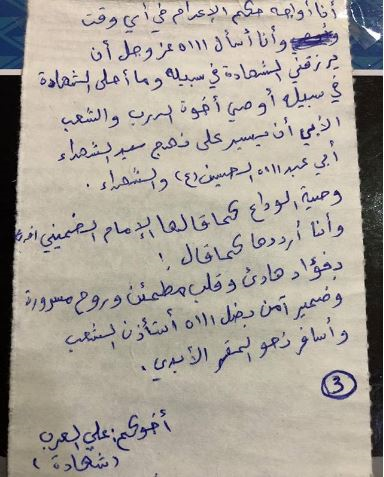 أنا أواجه حكم الإعدام في أي وقت
وأنا أسأل الله عز وجل أن
يرزقني الشهادة في سبيله وما أحلى الشهادة
في سبيله أوصي أخوة الدرب والشعب
الأبي أن يسير على نهج سيد الشهداء
أبي عبد الله الحسين (ع) والشهداء .
وصية الوداع كما قالها الإمام الخميني
وأنا أرددها كما قال !
بفؤاد هادئ وقلب مطمئن وروح مسرورة
وضمير آمن بفضل الله أستأذن الشعب
وأسافر نحو المقر الأبدي .
3
أخوكم : علي العرب
(شهادة)